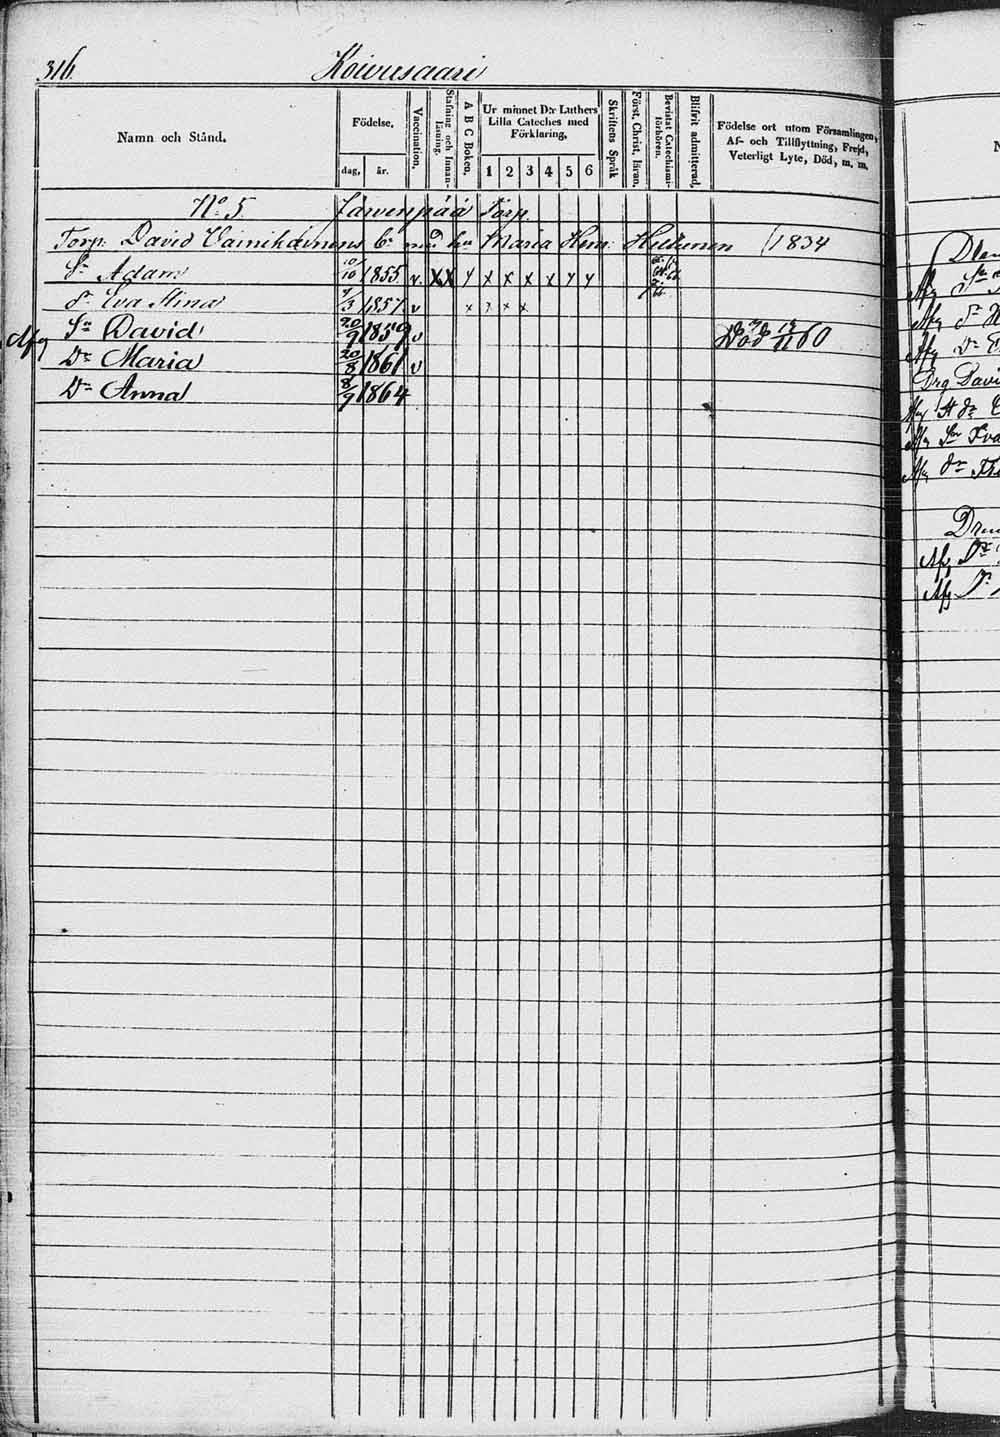 316.
Koivusaari
Namn och Stånd.
Födelse.
dag, år.
Vaccination.
Stafning och Innanläsning.
A B C Boken.
Ur minnet D:r Luthers Lilla Cateches med Förklaring.
1 2 3 4 5 6
Skriftens Språk
Först. Christ. läran.
Bevistat Catechismiförhören.
Blifvit admitterad.
Födelse ort utom Församlingen,
Af- och Tillflyttning, Frejd,
Veterligt Lyte, Död, m. m.
No 5. Järvenpää Torp.
Torp. David Vainikainens b. med hu Maria Hem: Hulkunen /1834
Sn Adam 10/10 1855 v. X X y x x x x y y
dr Eva Stina /3 1857 v x x x x
Afg Sn David 20/9 1859 v Död 13/11 60
Dr Maria 20/8 1861 v
Dr Anna 8/9 1864